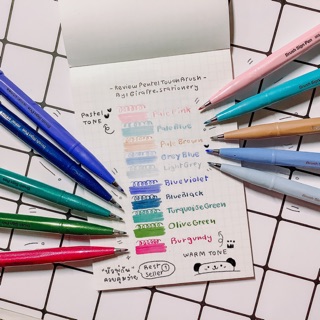 -Review Pentel Touch Brush-
By : Giraffe.stationery
Pastel TONE
Pale Pink
Pale Blue
Pale Brown
Gray Blue
Light Grey
Blue Violet
Blue Black
Turquoise Green
Olive Green
Burgundy
WARM TONE
BEST SELLER